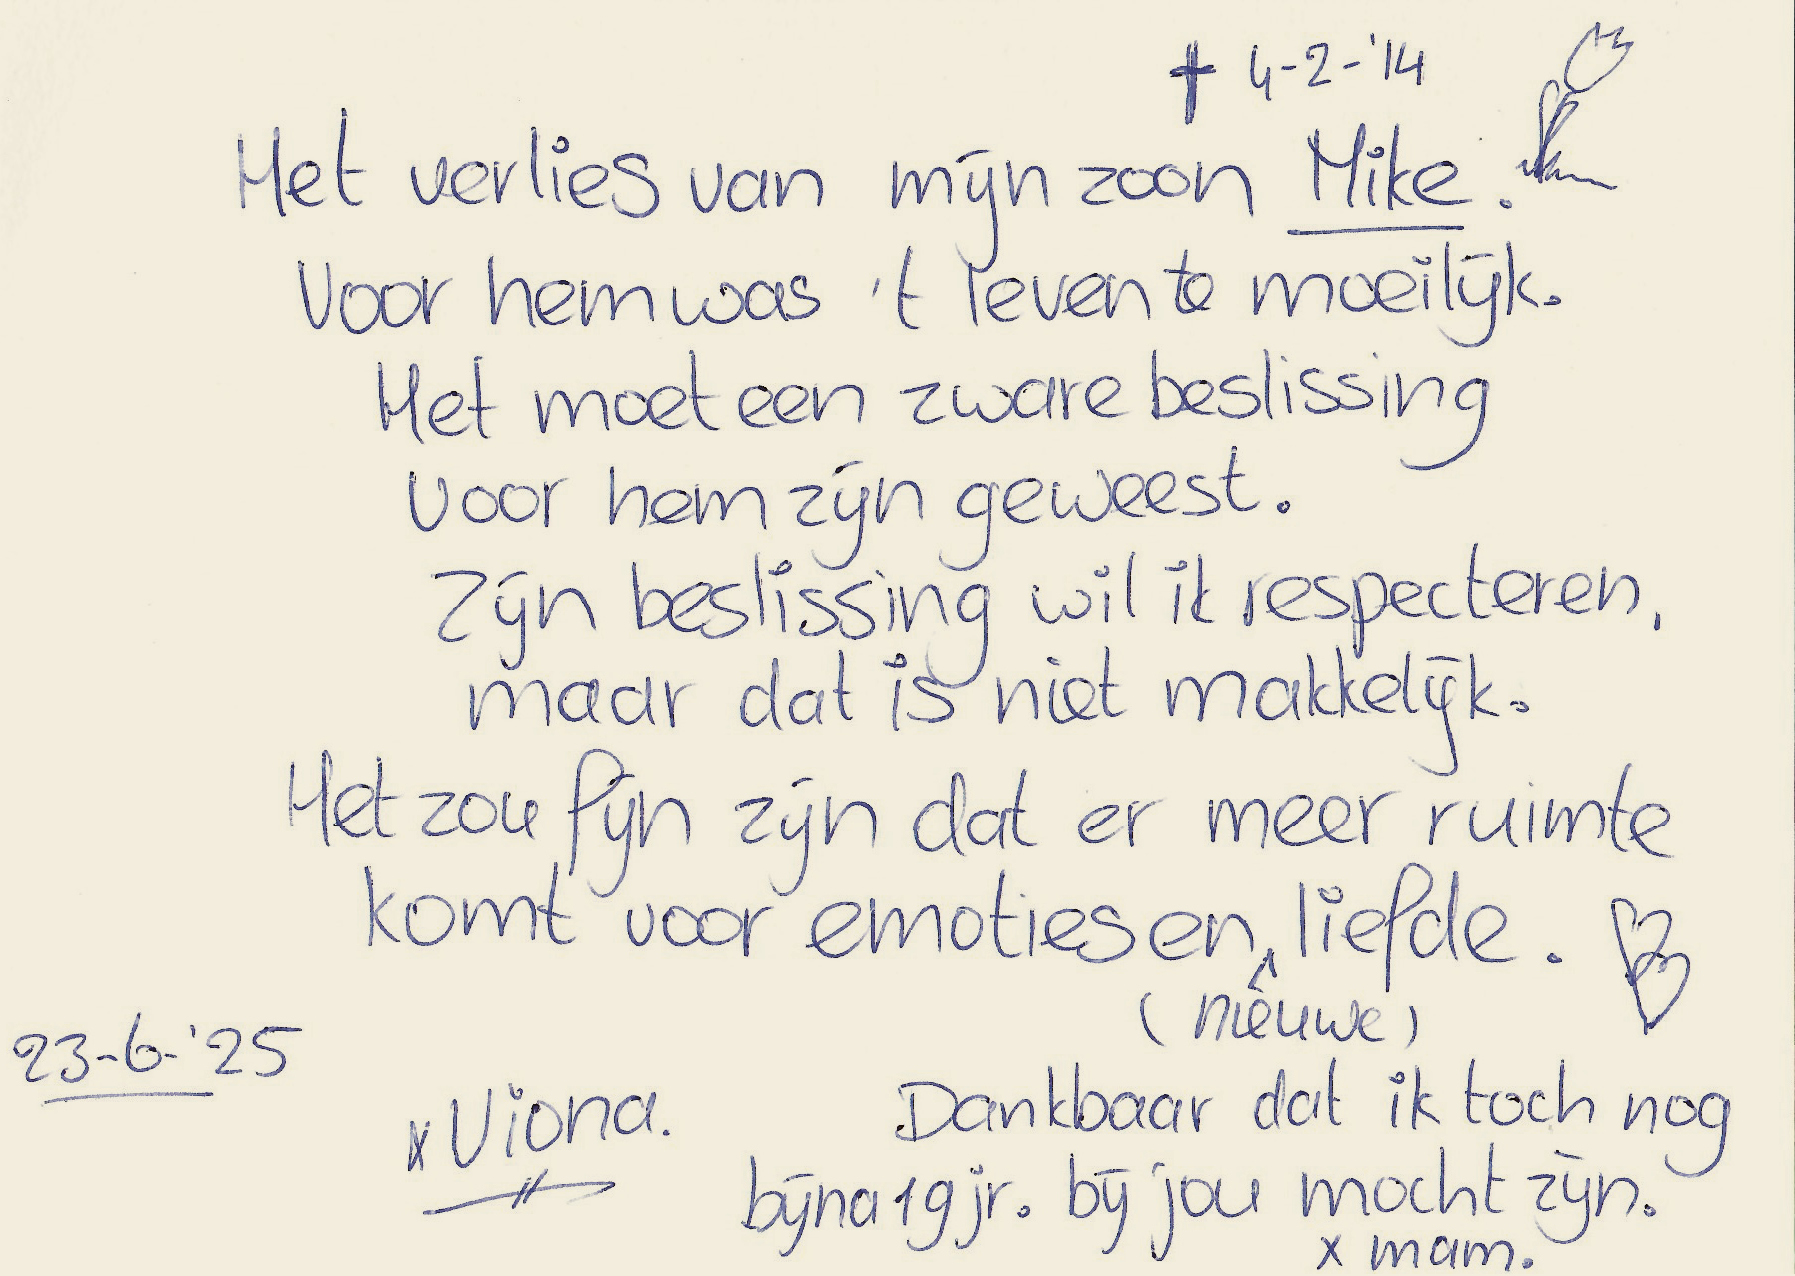 † 4-2-'14
Het verlies van mijn zoon Mike.
Voor hem was 't leven te moeilijk.
Het moet een zware beslissing
voor hem zijn geweest.
Zijn beslissing wil ik respecteren,
maar dat is niet makkelijk.
Het zou fijn zijn dat er meer ruimte
komt voor emoties en liefde.
(nieuwe)
23-6-'25
x Viona.
Dankbaar dat ik toch nog
bijna 19 jr. bij jou mocht zijn.
x mam.